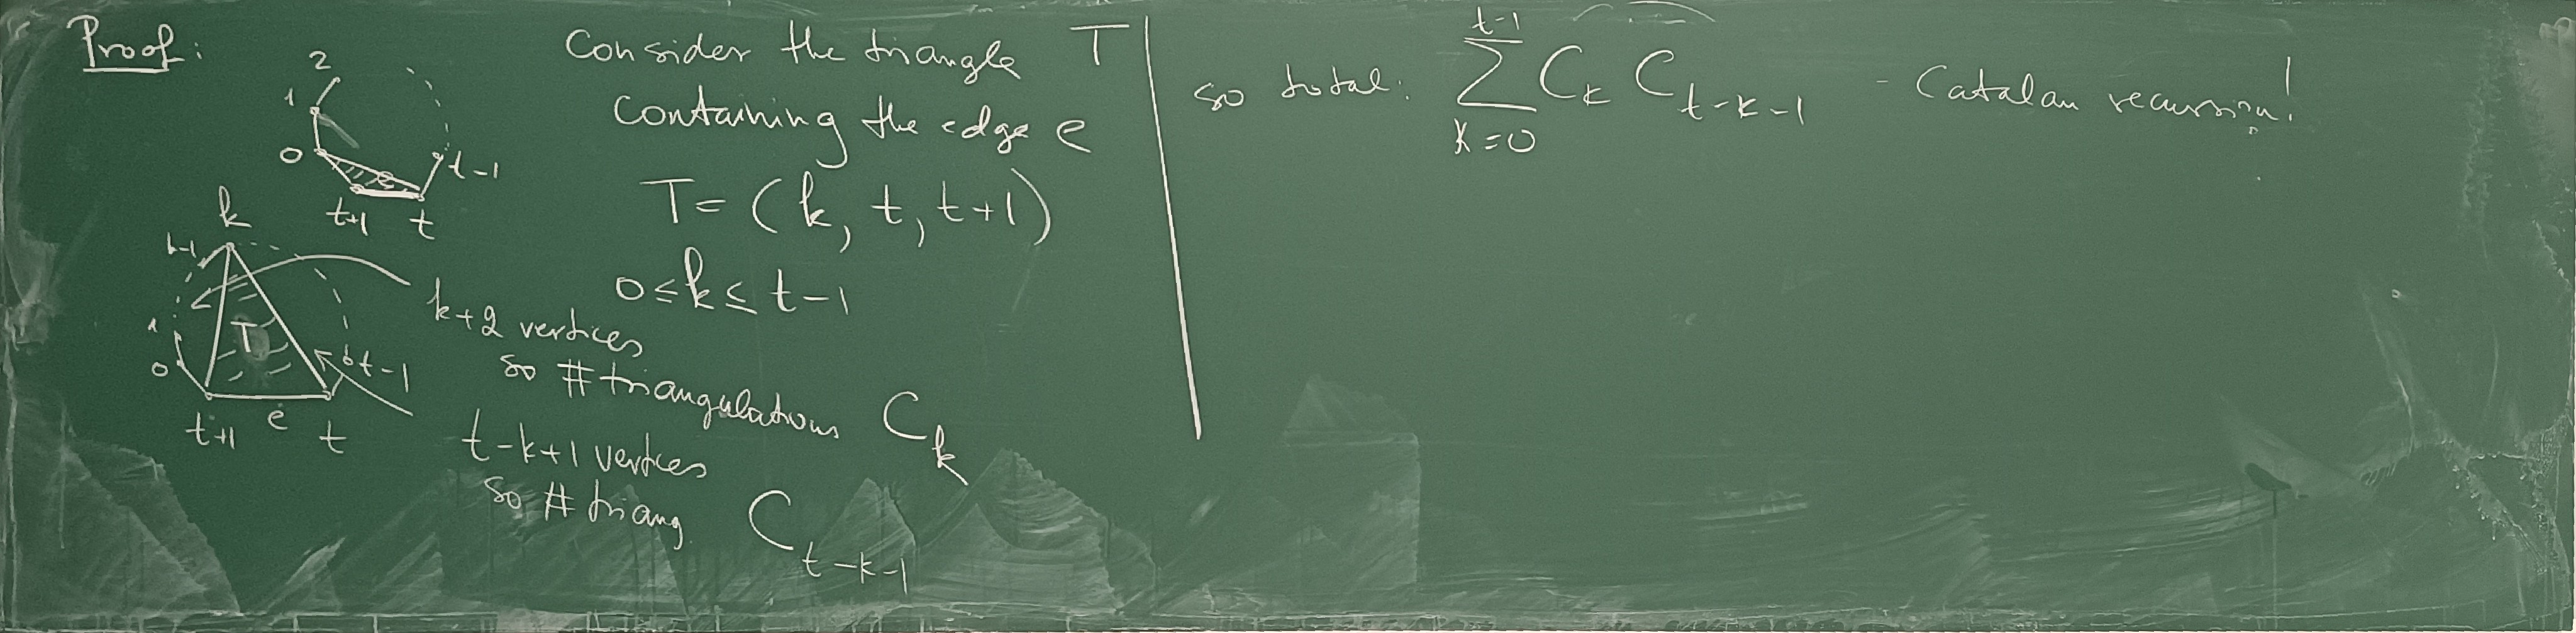 Proof:
2
1
0
e
t-1
t+1 t
Consider the triangle T
containing the edge e
T = (k, t, t+1)
0 ≤ k ≤ t-1
k
k-1
1
0
T
t-1
t+1 e t
k+2 vertices
so # triangulations C_k
t-k+1 vertices
so # triang. C_{t-k-1}
so total: \sum_{k=0}^{t-1} C_k C_{t-k-1} - Catalan recursion!